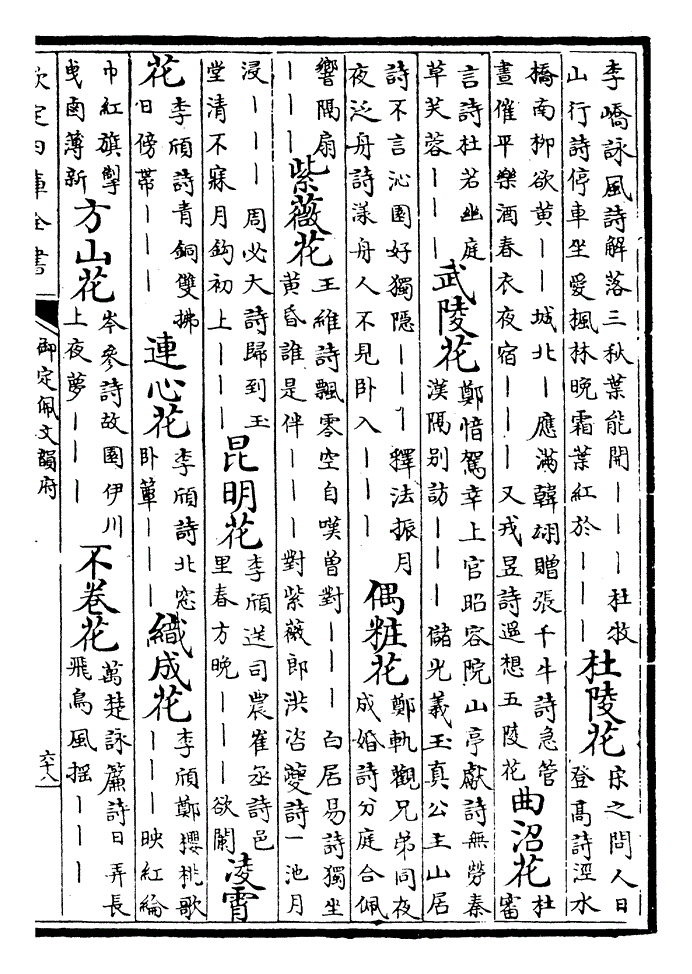 李嶠詠風詩解落三秋葉能開｜｜｜杜牧
山行詩停車坐愛楓林晚霜葉紅於｜｜｜
杜陵花
宋之問人日
登髙詩涇水
橋南栁欲黄｜｜城北｜應滿韓翃贈張千牛詩急管
晝催平樂酒春衣夜宿｜｜｜又戎昱詩遥想五陵花
曲沼花
杜
審
言詩杜若幽庭
草芙蓉｜｜｜
武陵花
鄭愔駕幸上官昭容院山亭獻詩無勞秦
漢隔别訪｜｜｜儲光羲玉真公主山居
詩不言沁園好獨隠｜｜｜釋法振月
夜泛舟詩漾舟人不見卧入｜｜｜
偶粧花
鄭軌觀兄弟同夜
成婚詩分庭合佩
響隔扇
｜｜｜
紫薇花
王維詩飄零空自嘆曽對｜｜｜白居易詩獨坐
黄昏誰是伴｜｜｜對紫薇郎洪咨夔詩一池月
浸｜｜｜周必大詩歸到玉
堂清不寐月鈎初上｜｜｜
昆明花
李頎送司農崔丞詩邑
里春方晚｜｜｜欲闌
凌霄
花
李頎詩青銅雙拂
日傍帶｜｜｜
連心花
李頎詩北窓
卧簟｜｜｜
織成花
李頎鄭櫻桃歌
｜｜｜映紅綸
巾紅旗掣
曳鹵薄新
方山花
岑參詩故園伊川
上夜夢｜｜｜
不卷花
萬楚詠簾詩日弄長
飛鳥風揺｜｜｜
欽定四庫全書
御定佩文韻府
六十八